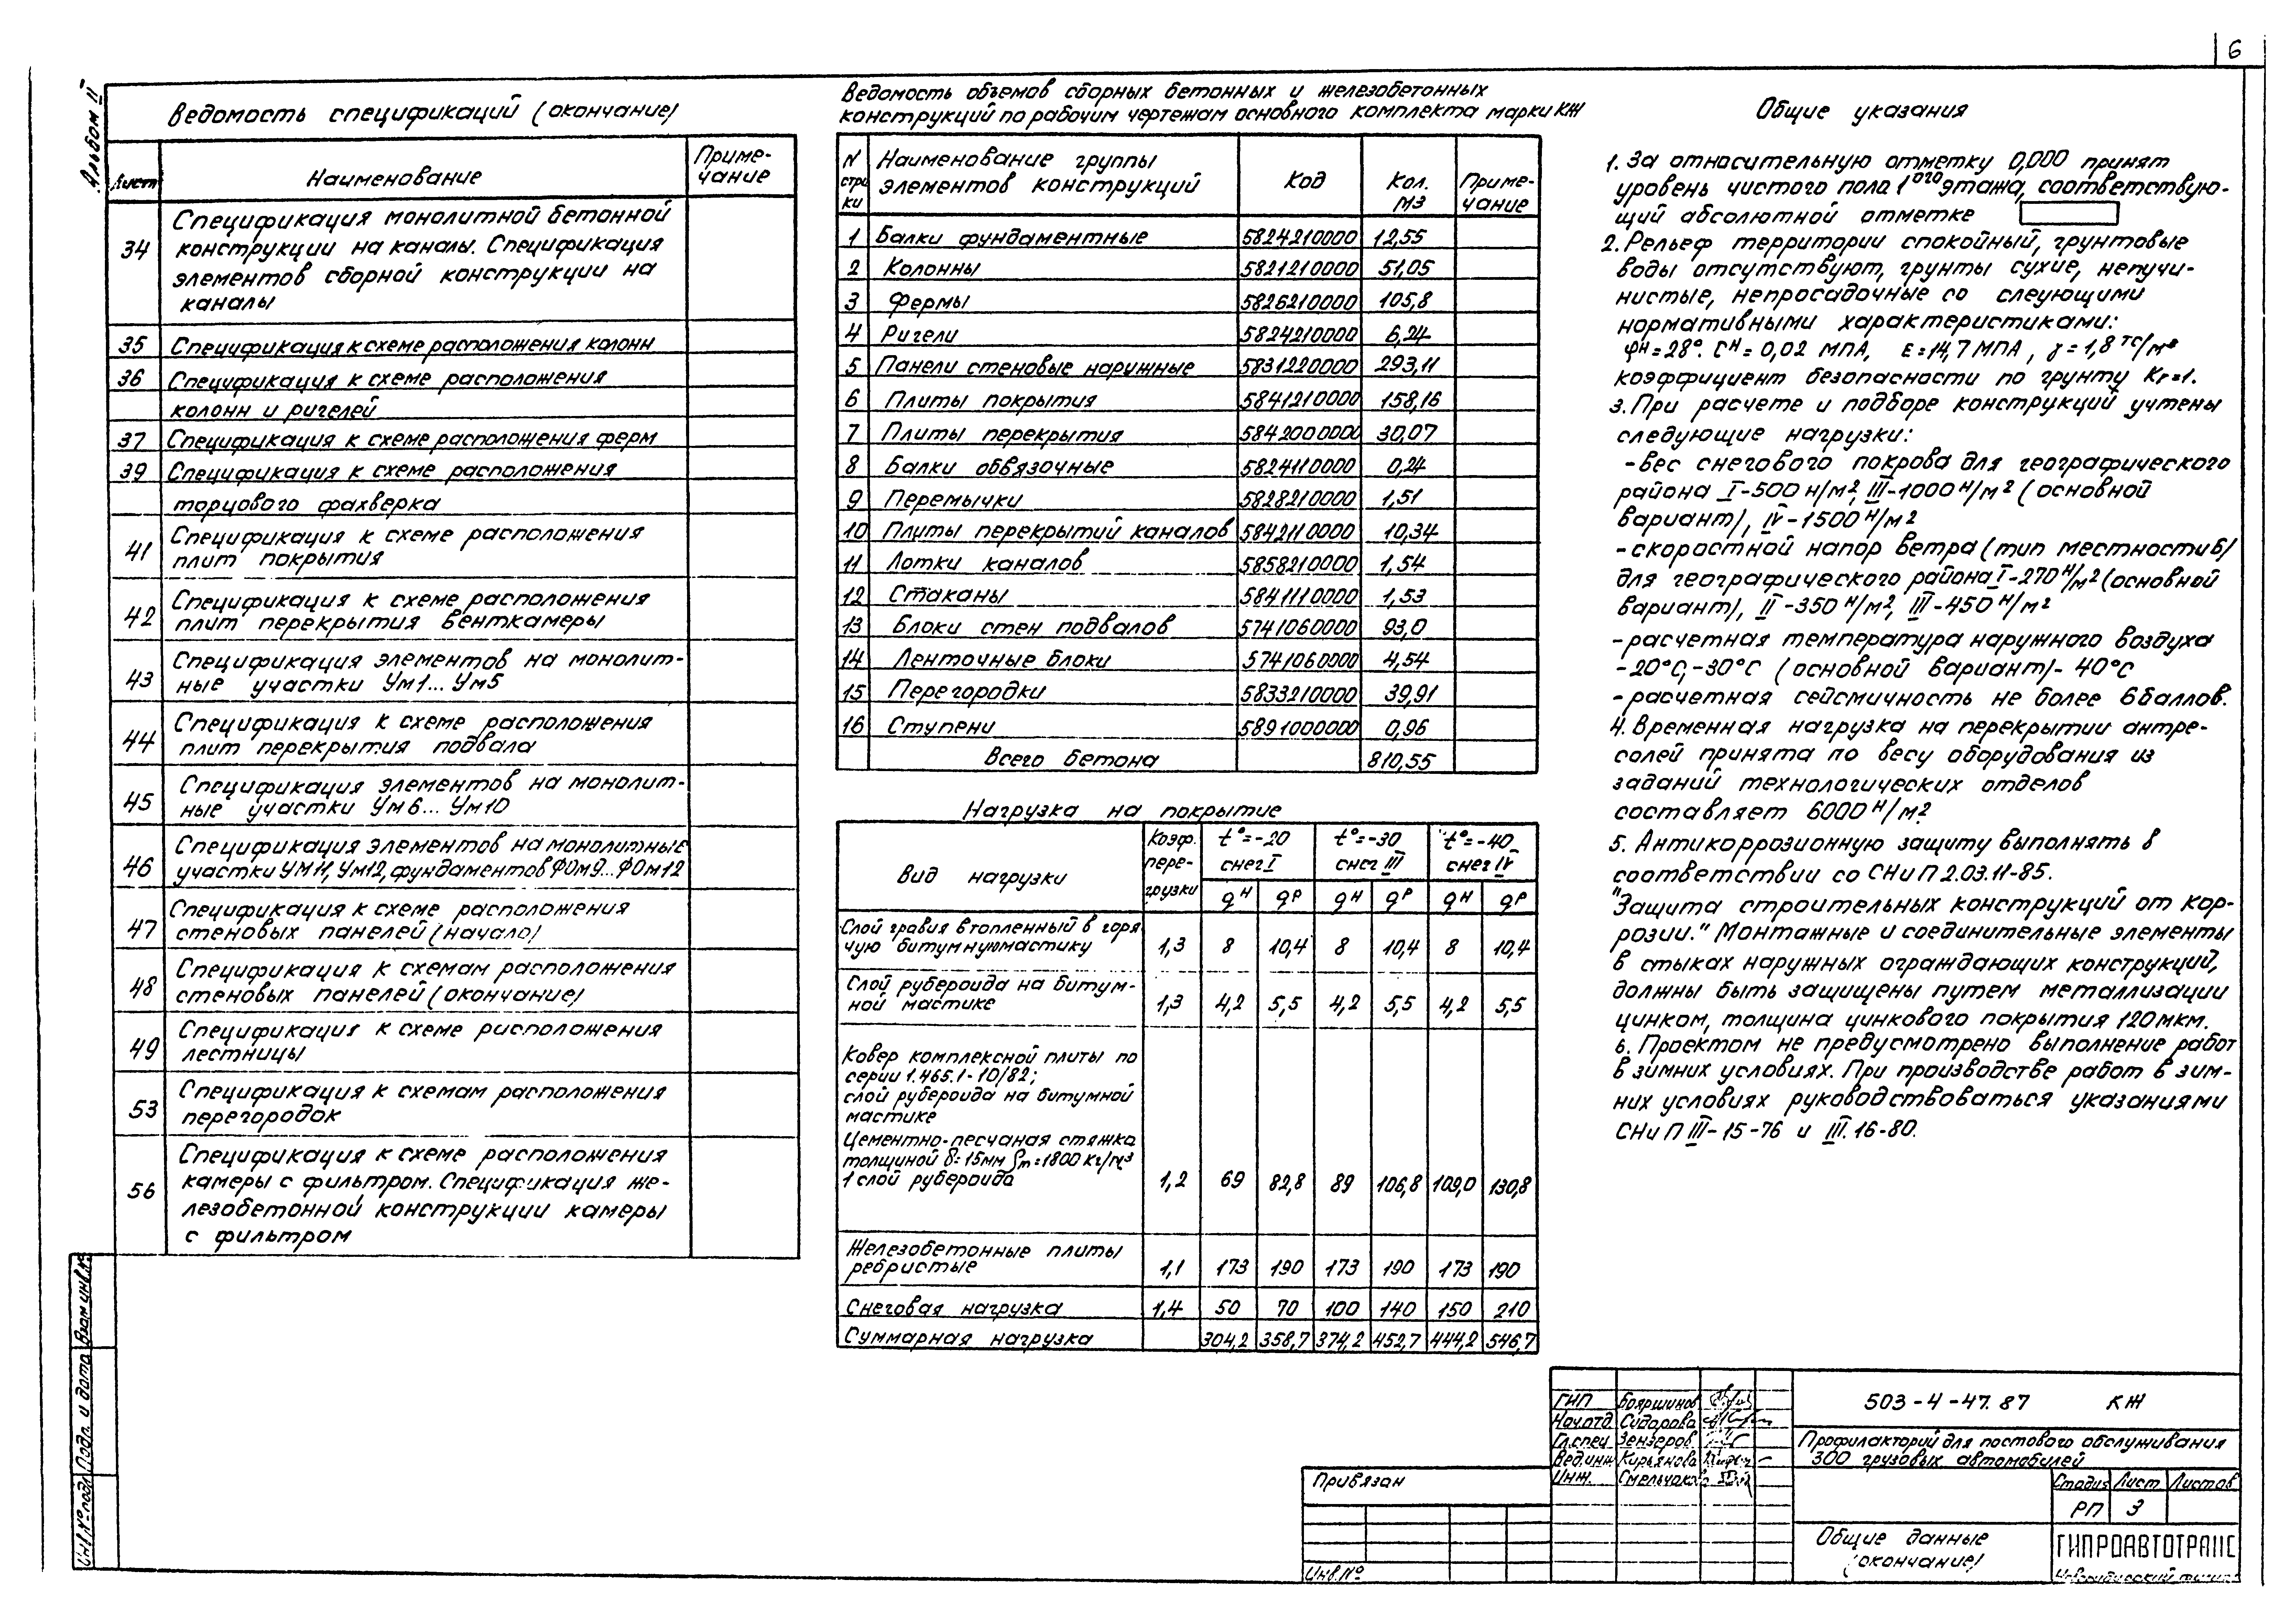 6
Альбом II
Ведомость спецификаций (окончание)
Лист Наименование Приме-
чание
34 Спецификация монолитной бетонной
конструкции на каналы. Спецификация
элементов сборной конструкции на
каналы
35 Спецификация к схеме расположения колонн
36 Спецификация к схеме расположения
колонн и ригелей
37 Спецификация к схеме расположения ферм
39 Спецификация к схеме расположения
торцового фахверка
41 Спецификация к схеме расположения
плит покрытия
42 Спецификация к схеме расположения
плит перекрытия венткамеры
43 Спецификация элементов на монолит-
ные участки Ум1... Ум5
44 Спецификация к схеме расположения
плит перекрытия подвала
45 Спецификация элементов на монолит-
ные участки Ум6... Ум10
46 Спецификация элементов на монолитные
участки УМ11, Ум12, фундаментов ФОм9... ФОм12
47 Спецификация к схеме расположения
стеновых панелей (начало)
48 Спецификация к схемам расположения
стеновых панелей (окончание)
49 Спецификация к схеме расположения
лестницы
53 Спецификация к схемам расположения
перегородок
56 Спецификация к схеме расположения
камеры с фильтром. Спецификация же-
лезобетонной конструкции камеры
с фильтром
Ведомость объемов сборных бетонных и железобетонных
конструкций по рабочим чертежам основного комплекта марки КЖ
N стро ки Наименование группы элементов конструкций Код Кол. м3 Приме-чание
1 Балки фундаментные 5824210000 12,55
2 Колонны 5821210000 51,05
3 Фермы 5826210000 105,8
4 Ригели 5824210000 6,24
5 Панели стеновые наружные 5831220000 293,11
6 Плиты покрытия 5841210000 158,16
7 Плиты перекрытия 5842000000 30,07
8 Балки обвязочные 5824110000 0,24
9 Перемычки 5828210000 1,51
10 Плиты перекрытий каналов 5842110000 10,34
11 Лотки каналов 5858210000 1,54
12 Стаканы 5841110000 1,53
13 Блоки стен подвалов 5741060000 93,0
14 Ленточные блоки 5741060000 4,54
15 Перегородки 5833210000 39,91
16 Ступени 5891000000 0,96
Всего бетона 810,55
Нагрузка на покрытие
Вид нагрузки Коэф. пере- грузки t°=-20 снег I t°=-30 снег III t°=-40 снег IV
qн qр qн qр qн qр
Слой гравия втопленный в горя
чую битумную мастику 1,3 8 10,4 8 10,4 8 10,4
Слой рубероида на битум-
ной мастике 1,3 4,2 5,5 4,2 5,5 4,2 5,5
Ковер комплексной плиты по
серии 1.465.1-10/82;
слой рубероида на битумной
мастике
Цементно-песчаная стяжка
толщиной δ=15мм ρm=1800 кг/м3
1 слой рубероида 1,2 69 82,8 89 106,8 109,0 130,8
Железобетонные плиты
ребристые 1,1 173 190 173 190 173 190
Снеговая нагрузка 1,4 50 70 100 140 150 210
Суммарная нагрузка 304,2 358,7 374,2 452,7 444,2 546,7
Общие указания
1. За относительную отметку 0,000 принят
уровень чистого пола 1ого этажа, соответствую-
щий абсолютной отметке
2. Рельеф территории спокойный, грунтовые
воды отсутствуют, грунты сухие, непучи-
нистые, непросадочные со слеующими
нормативными характеристиками:
φн=28°. Сн=0,02 МПА, Е=14,7МПА, γ=1,8 тс/м3
коэффициент безопасности по грунту Кг=1.
3. При расчете и подборе конструкций учтены
следующие нагрузки:
-вес снегового покрова для географического
района I-500 н/м2, III-1000 н/м2 (основной
вариант), IV-1500 н/м2
-скоростной напор ветра (тип местности Б)
для географического района I-270 н/м2 (основной
вариант), II-350 н/м2, III-450 н/м2
-расчетная температура наружного воздуха
-20°С,-30°С (основной вариант)- 40°С
-расчетная сейсмичность не более 6 баллов.
4. Временная нагрузка на перекрытии антре-
солей принята по весу оборудования из
заданий технологических отделов
составляет 6000 н/м2.
5. Антикоррозионную защиту выполнять в
соответствии со СНиП 2.03.11-85.
"Защита строительных конструкций от кор-
розии." Монтажные и соединительные элементы
в стыках наружных ограждающих конструкций,
должны быть защищены путем металлизации
цинком, толщина цинкового покрытия 120мкм.
6. Проектом не предусмотрено выполнение работ
в зимних условиях. При производстве работ в зим-
них условиях руководствоваться указаниями
СНиП III-15-76 и III.16-80.
Инв.№подл. Подп. и дата Взам инв.№
Привязан
Инв.№
ГИП Бояршинов
Нач.отд. Сидорова
Гл.спец Зензеров
Вед.инж Кирьянова
Инж. Смельчаков
503-4-47.87 КЖ
Профилакторий для постового обслуживания
300 грузовых автомобилей
Стадия Лист Листов
РП 3
Общие данные
(окончание)
ГИПРОАВТОТРАНС